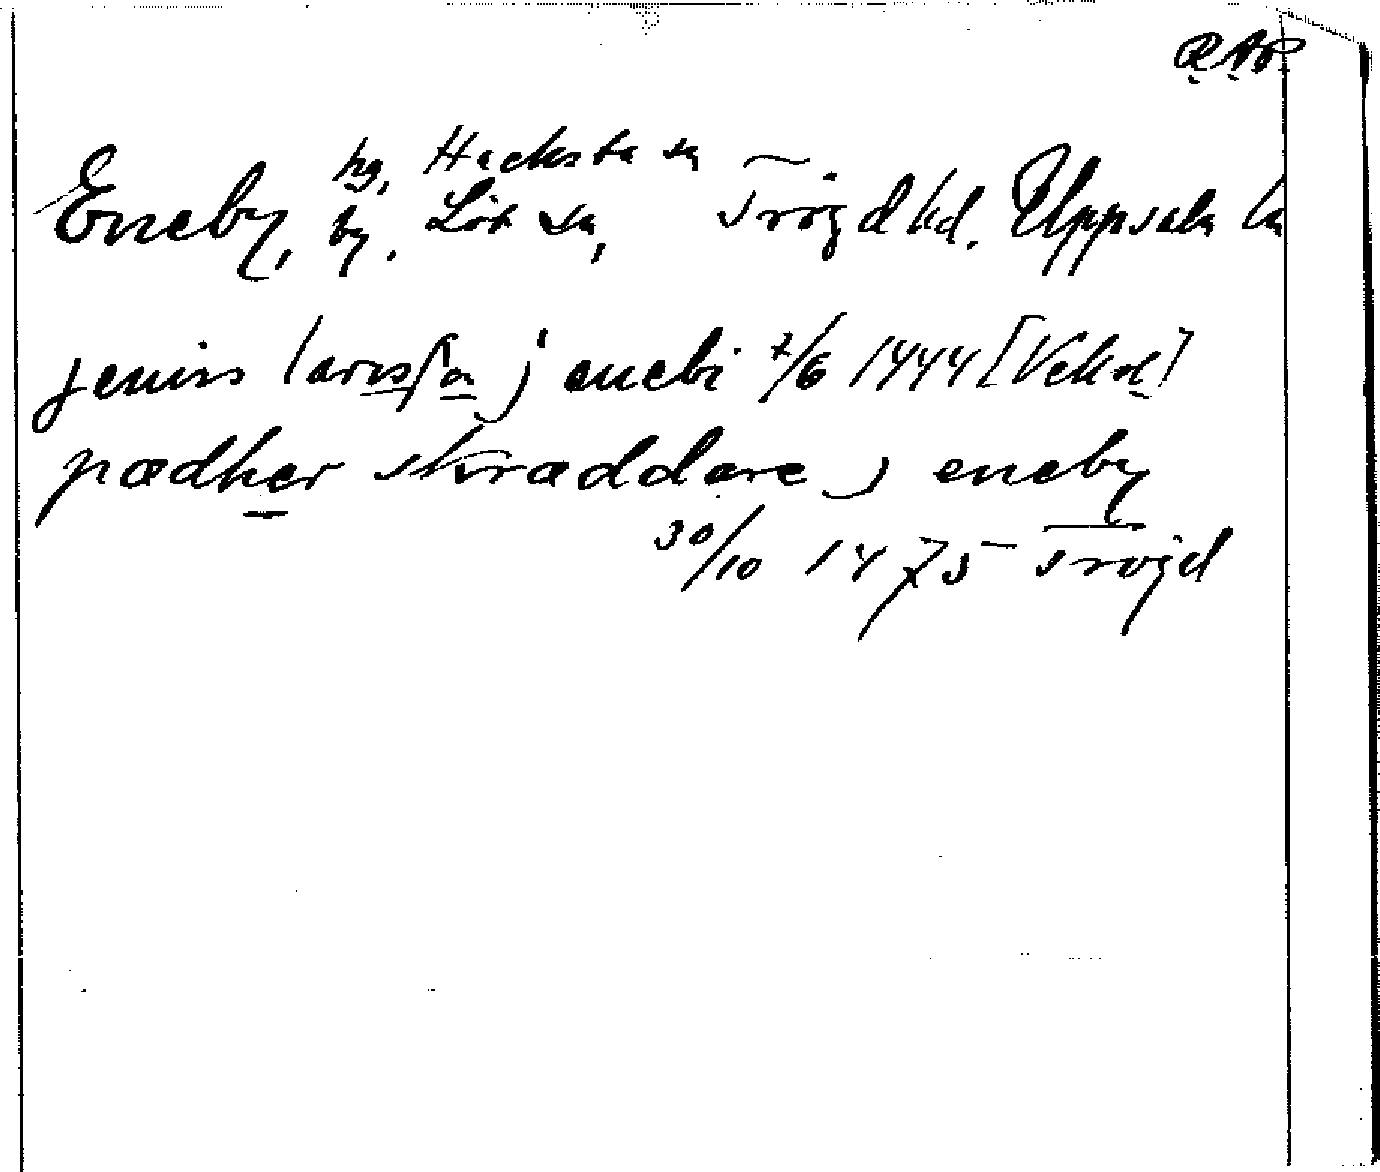 RAP
hg, Hacksta sn
Eneby, by, Löt sn, Trögd hd. Uppsala län
jeniss larissa j enebi 7/6 1444 [Veckh]
pædher skræddare j eneby
30/10 1475 Trögd